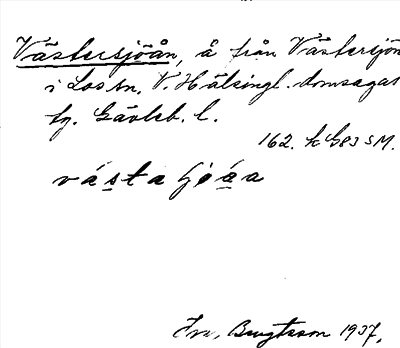 Västersjöån, å från Västersjön
i Los sn, V. Hälsingl. domsagas
tg. Gävleb. l.
162. k G83 SM.
västa hjöaa
Bengtsson 1937.